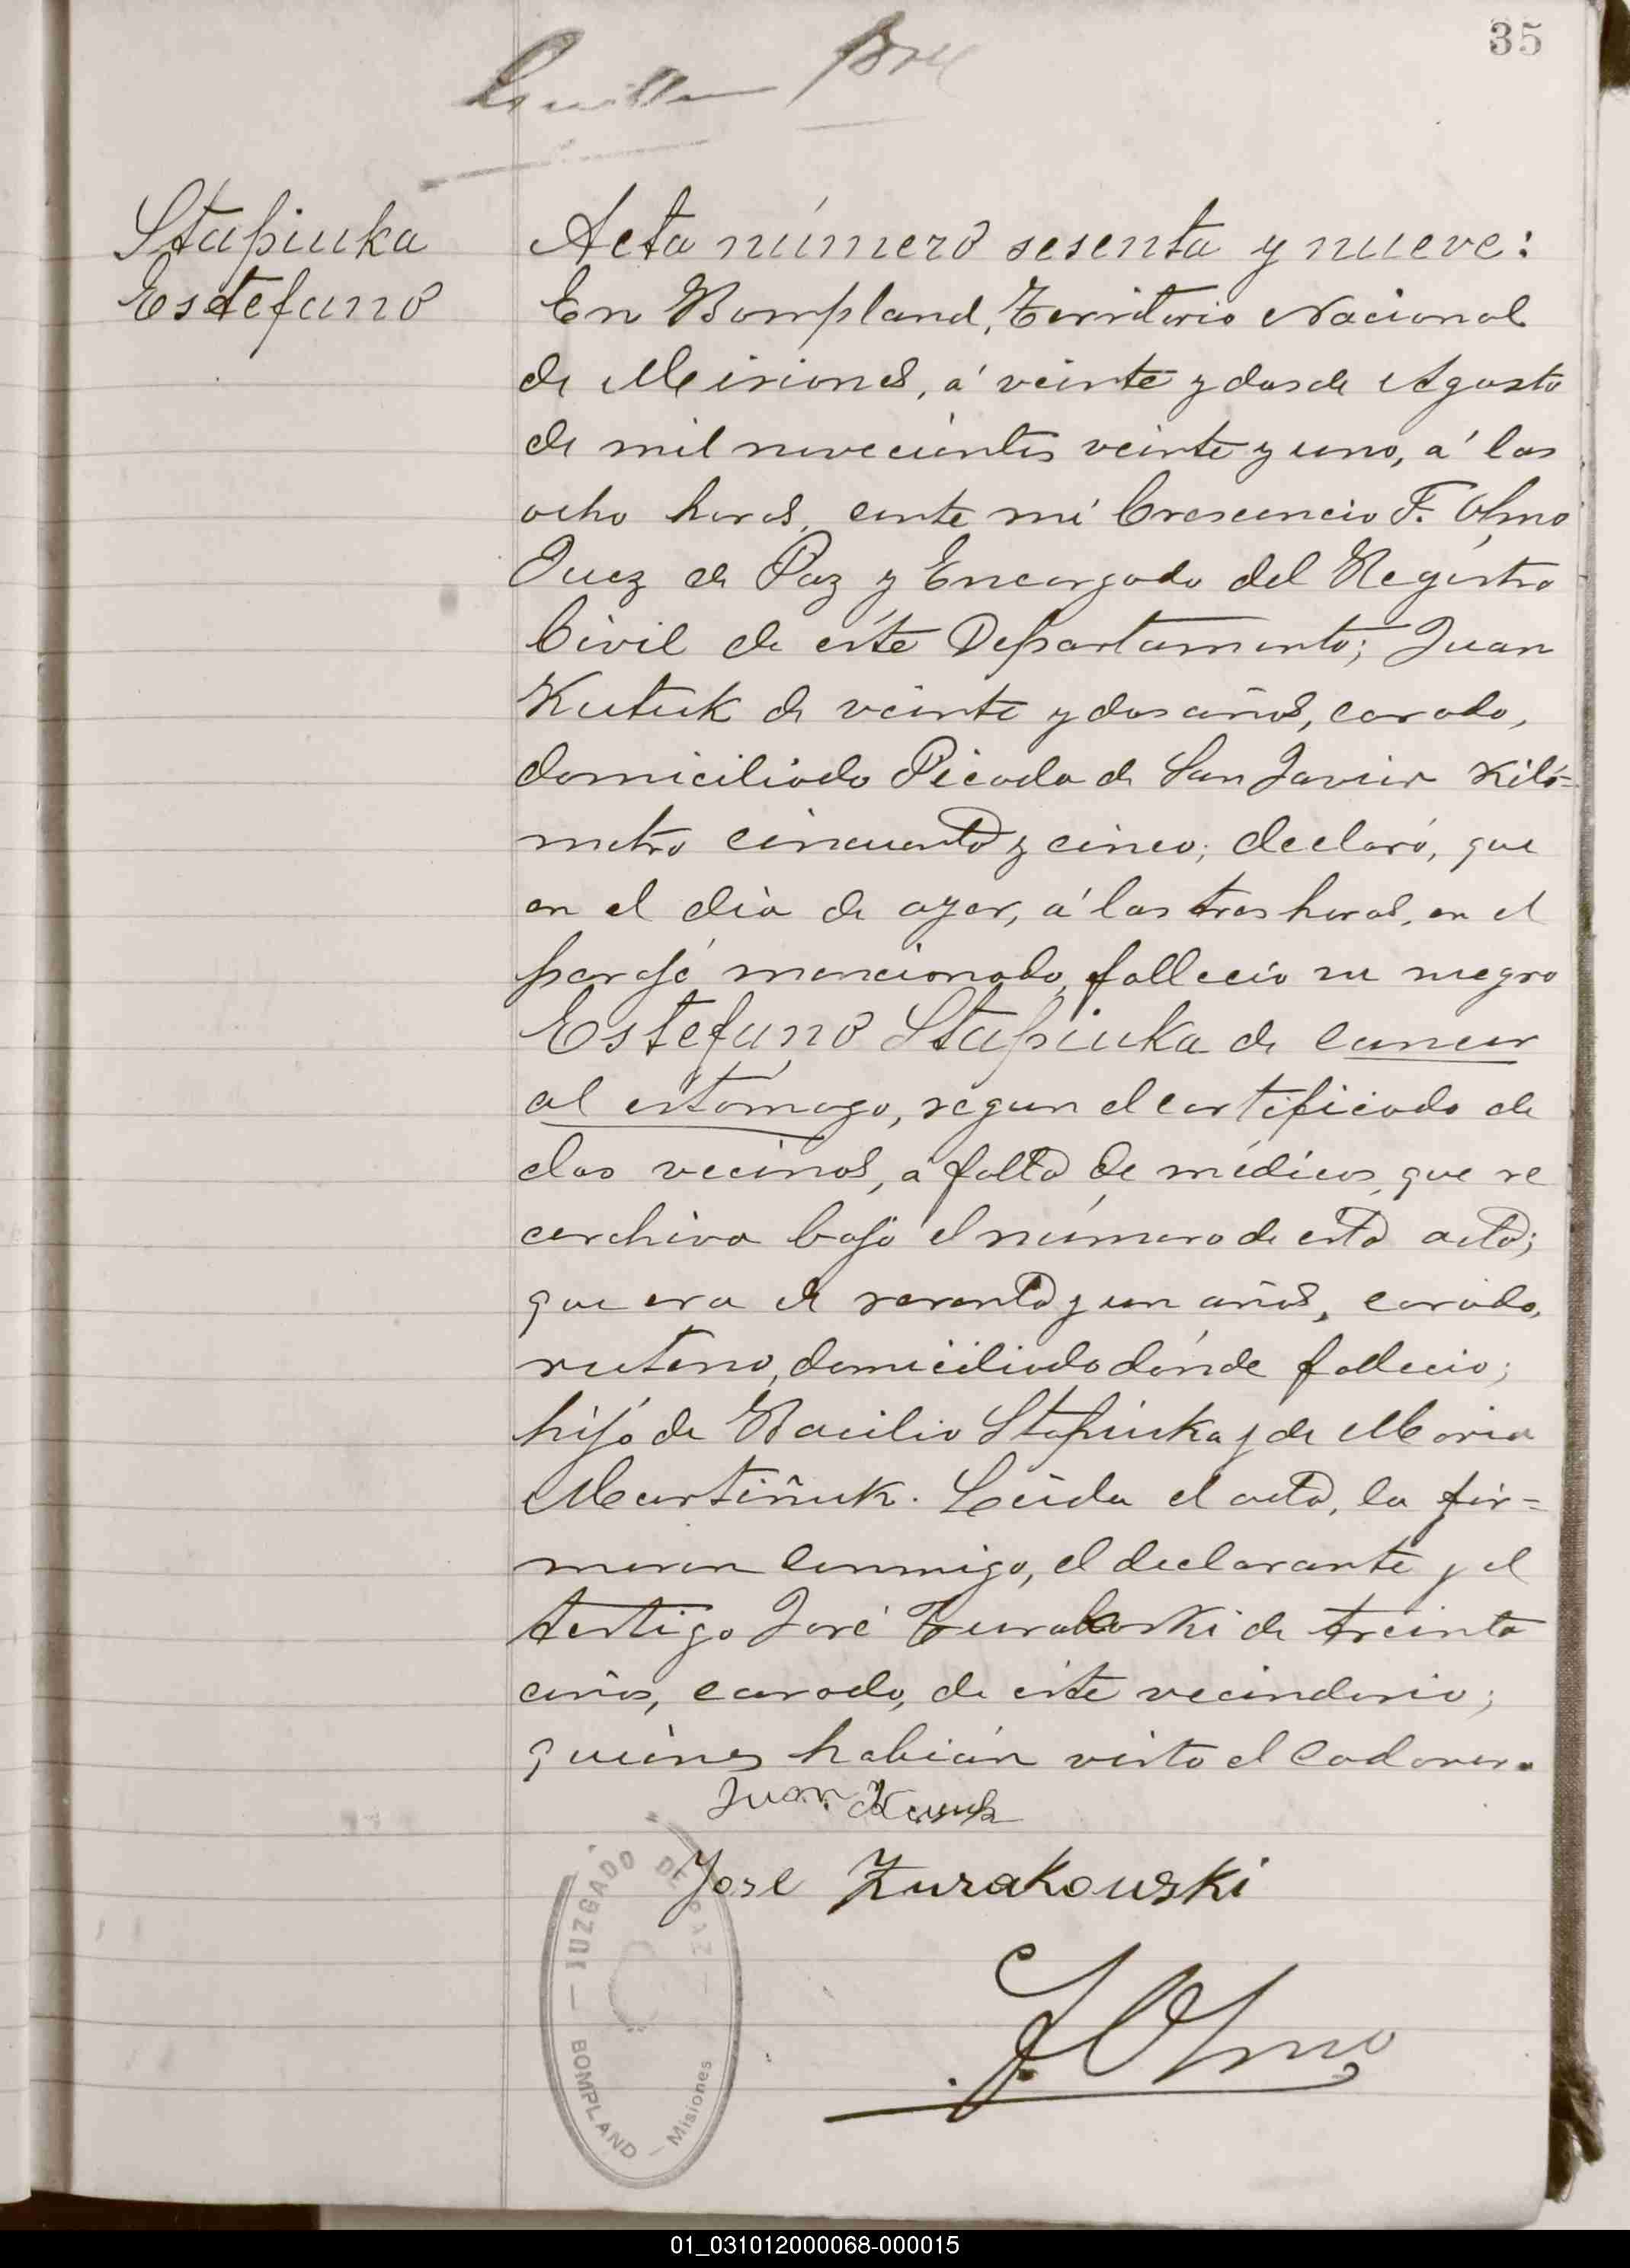 35
Stapiuka
Estefano
Acta número sesenta y nueve:
En Bompland, Territorio Nacional
de Misiones, á veinte y dos de Agosto
de mil novecientos veinte y uno, á las
ocho horas, ante mi Crescencio F. Olmo
Juez de Paz y Encargado del Registro
Civil de éste Departamento; Juan
Kutuk de veinte y dos años, casado,
domiciliado Picada de San Javier Kiló=
metro cincuenta y cinco; declaró, que
en el dia de ayer, á las tres horas, en el
paraje mencionado, falleció su suegro
Estefano Stapiuka de cancer
al estómago, segun el certificado de
dos vecinos, á falta de médicos, que se
archiva bajo el número de esta acta;
que era de sesenta y un años, casado,
ruteno, domiciliado dónde falleció;
hijo de Basilio Stapiuka y de Maria
Martiñuk. Leida el acta, la fir=
maron conmigo, el declarante y el
testigo José Zurakoski de treinta
años, casado, de éste vecindario;
quiénes habián visto el cadaver.
Juan
Jose Zurakowski
F. Olmo
JUZGADO DE PAZ
BOMPLAND - Misiones
01_031012000068-000015